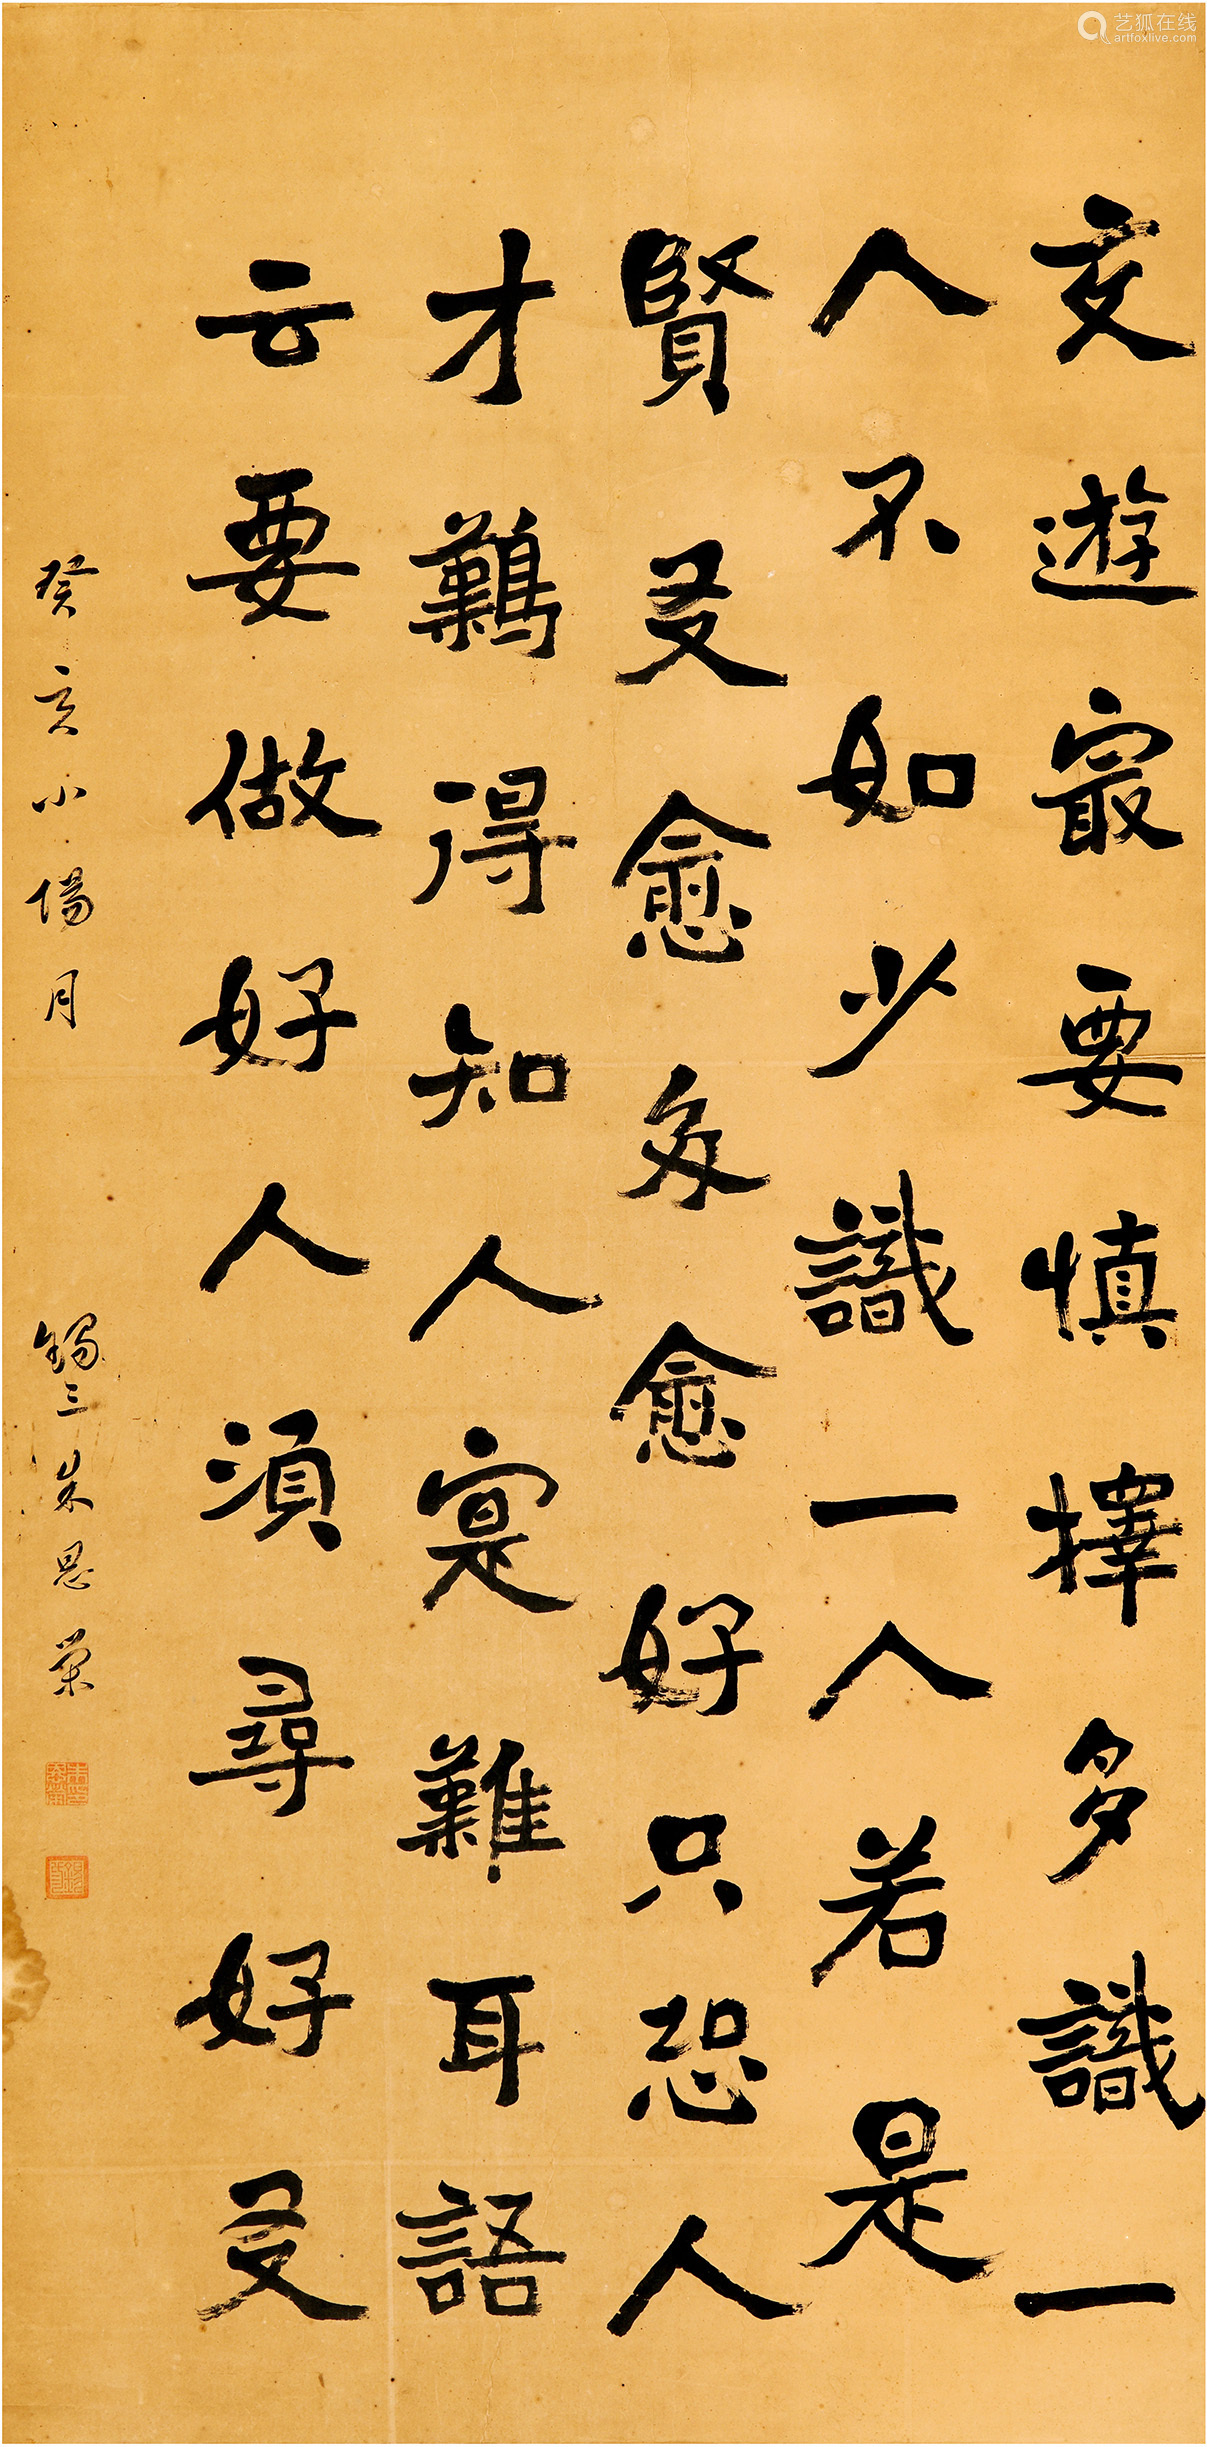 交遊最要慎擇多識一
人不如少識一人若是
賢友愈多愈好只恐人
才難得知人寔難耳語
云要做好人須尋好友
癸亥小陽月
錫三朱恩榮
艺狐在线
artfoxlive.com